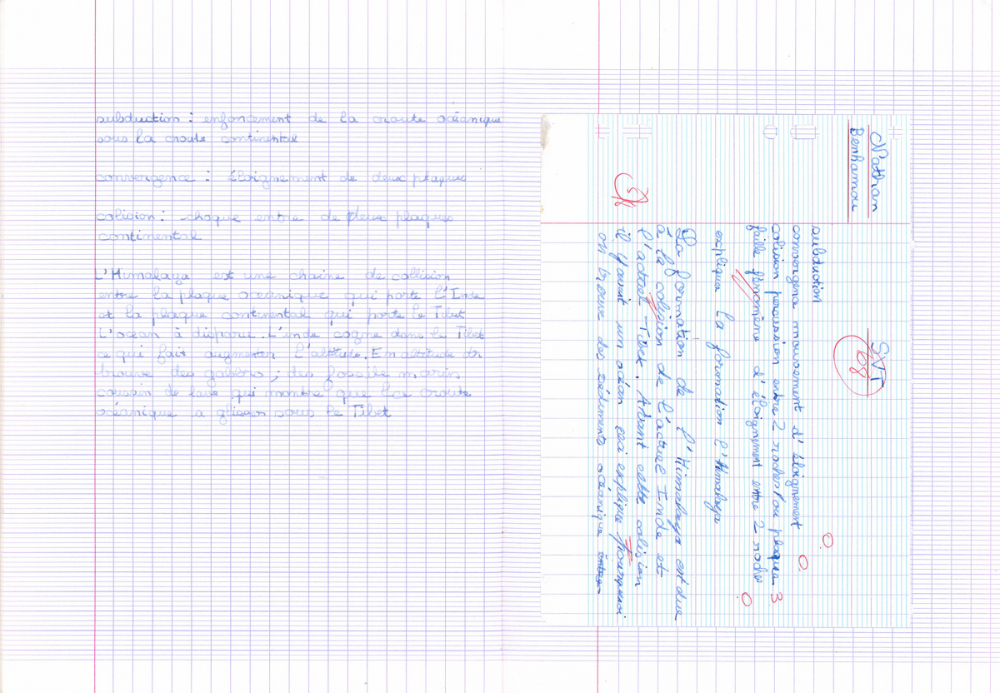 subduction : enfoncement de la croute océanique
sous la croute continental
convergence : éloignement de deux plaques
colision : choque entre de deux plaques
continental
L'Himalaya est une chaine de collision
entre la plaque océanique qui porte l'Inde
et la plaque continental qui porte le Tibet
L'océan à disparu. L'inde cogne dans le Tibet
ce qui fait augmenter l'altitude. En altitude on
trouve des gabbro ; des fossile marin
coussin de lave qui montre que la croute
océanique a glisser sous le Tibet
Nathan
Benhamou
SVT
08
subduction
convergence mouvement d'éloignement 0
colision percussion entre 2 roches ou plaques 3
faille fénomène d'éloignement entre 2 roches 0
explique la formation l'Himalaya
La formation de l'Himalaya est due
à la colision de l'actuel Inde et
l'actuel Tibet. Avant cette colision
il y avait un océan ceci explique pourquoi
on trouve des sédiments océanique